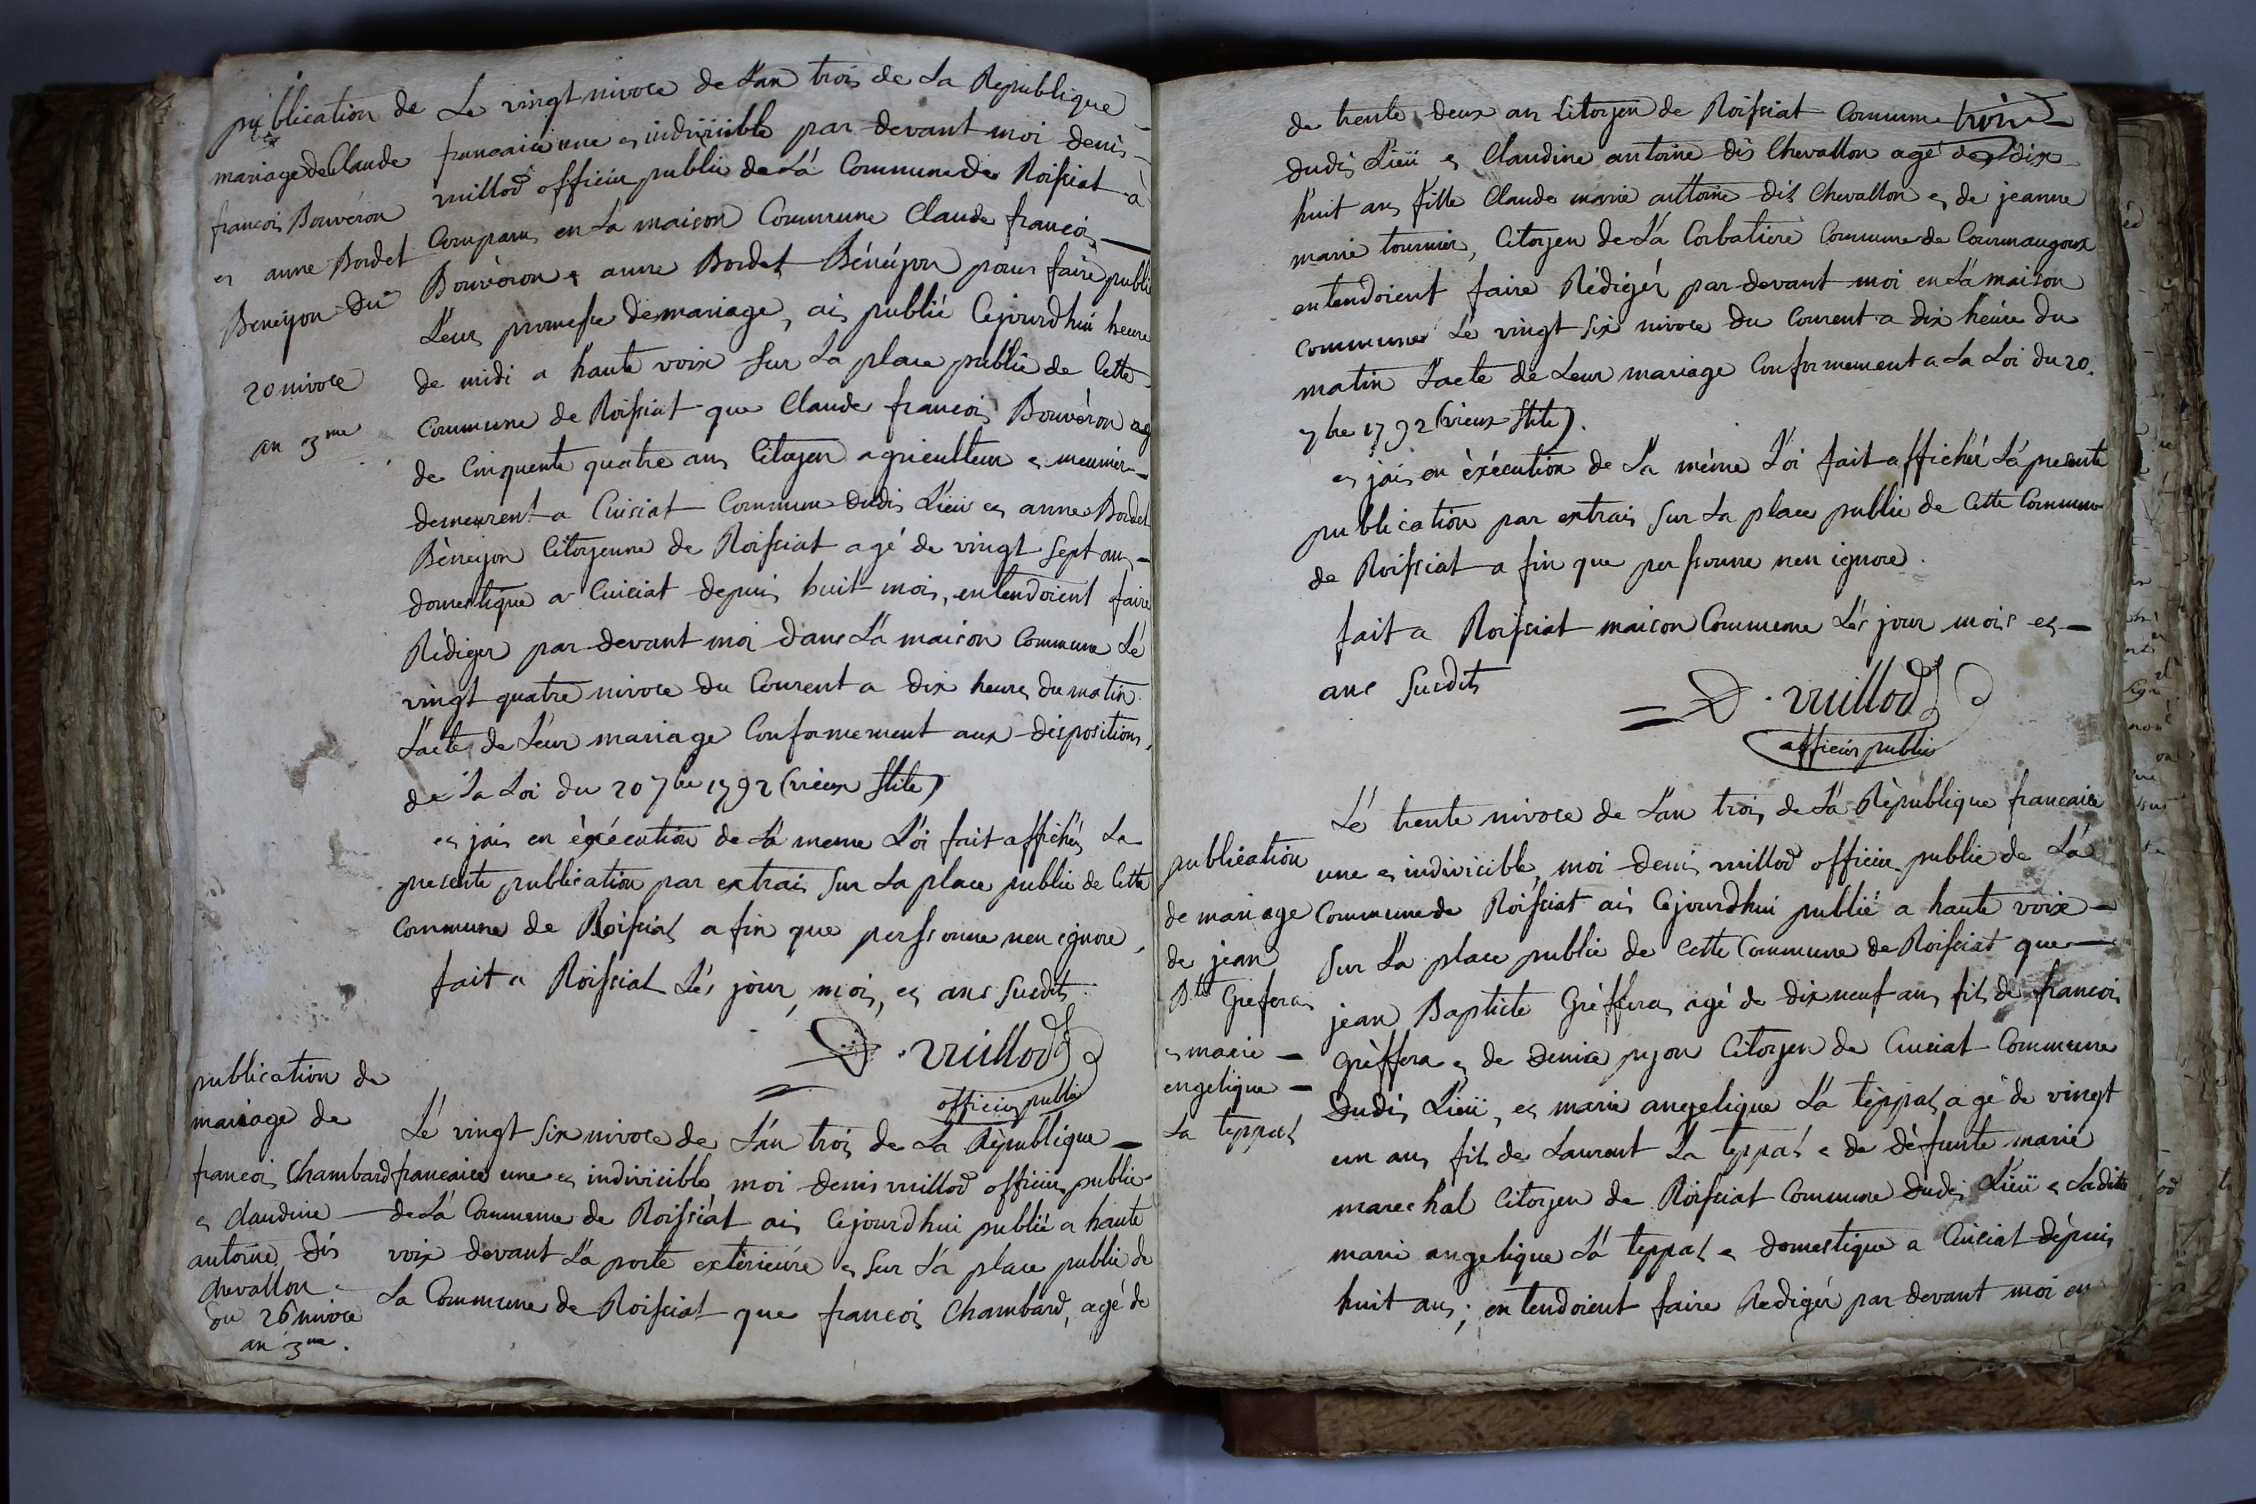 publication de
mariage de Claude
francois Bouvéron
et anne Bordet
Beneÿon du
20 nivoce
an 3me
Le vingt nivoce de L'an trois de La Republique
francaice une et indivicible par devant moi denis
vuillod officier public de La Commune de Roissiat a
Comparus en La maison Commune Claude francois
Bouvéron et anne Bordet Bénéÿon pour faire publié
Leurs promesse de mariage, ais publié Cejourdhui heure
de midi a haute voix sur La place public de Cette
Commune de Roissiat que Claude francois Bouvéron agé
de Cinquente quatre ans Citoyen agriculteur et meunier
demeurent a Cuisiat Commune dudis Lieü et anne Bordet
Béneyon Citoyenne de Roissiat agé de vingt sept ans
domestique a Cuiciat depuis huit mois, entendoient faire
Rédiger par devant moi dans La maison Commune Le
vingt quatre nivoce du Courent a dix heures du matin
L'acte de Leur mariage Conformement aux dispositions
de La Loi du 20 7bre 1792 (vieux stile)
et jais en éxécution de La meme Loi fait affichés La
presente publication par extrais sur La place public de Cette
Commune de Roissiat a fin que perssonne nen ignore,
fait a Roissiat Les jour, mois, et ans susdits.
D. vuillod
officier public
publication de
mariage de
francois Chambard
et claudine
antoine dis
chevallon
du 26 nivoce
an 3me.
Le vingt six nivoce de L'an trois de La République
francaice une et indivicible moi denis vuillod officier public
de La Commune de Roissiat ais Cejourdhui publié a haute
voix devant La porte extérieure et sur La place public de
La Commune de Roissiat que francois Chambard, agé de
de trente deux ans Citoyen de Roissiat Commune
dudis Lieü et Claudine antoine dis Chevallon agé de dix
huit ans fille Claude marie antoine dit Chevallon et de jeanne
marie tournier, Citoyen de La Corbatiere Commune de Courmangoux
entendoient faire Rédigér par devant moi en La maison
commune Le vingt six nivoce du Courent a dix heure du
matin L'acte de Leur mariage Conformement a La Loi du 20
7bre 1792 (vieux stile).
et jais en éxécution de La méme Loi fait affichér La presente
publication par extrais sur La place public de Cette Commune
de Roissiat a fin que perssonne nen ignore.
fait a Roissiat maison Commune Les jour mois et
ans susdits
D. vuillod
officier public
publication
de mariage
de jean
Bte Grefera
et marie
engelique
La teppat
Le trente nivoce de L'an trois de La République francaice
une et indivicible, moi denis vuillod officier public de La
Commune de Roissiat ais Cejourdhui publié a haute voix
sur La place public de cette Commune de Roissiat que
jean Baptiste Gréffera agé de dix neuf ans fils de francois
Gréffera et de denice pyon Citoyen de Cuiciat Commune
dudis Lieü, et marie angelique La teppat agé de vingt
un ans fils de Laurent La teppat et de défunte marie
marechal Citoyen de Roissiat Commune dudis Lieü et Ladite
marie angelique La teppat et domestique a Cuiciat dépuis
huit ans; entendoient faire Rédigér par devant moi en